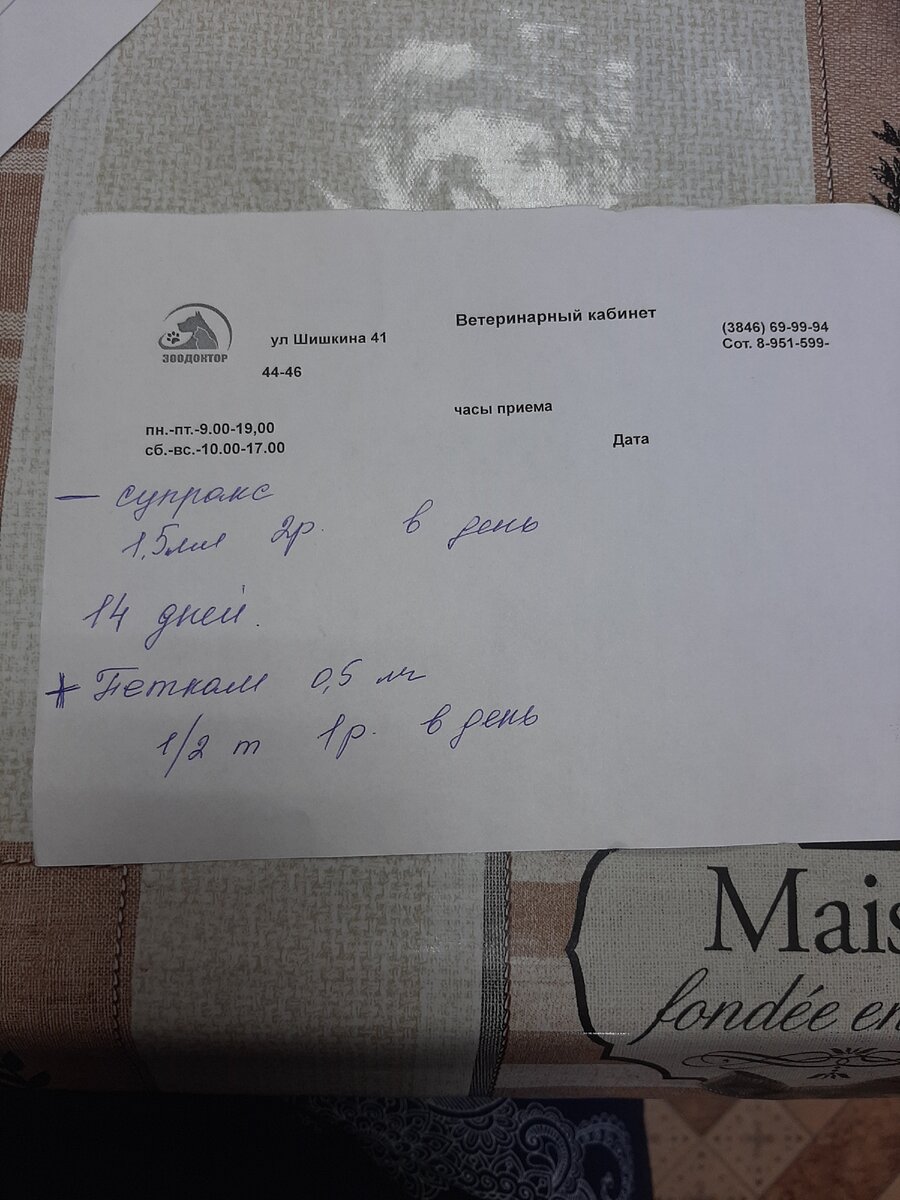 Ветеринарный кабинет
ЗООДОКТОР
ул Шишкина 41
(3846) 69-99-94
Сот. 8-951-599-
44-46
часы приема
пн.-пт.-9.00-19,00
сб.-вс.-10.00-17.00
Дата
— супракс
1,5мл 2р. в день
14 дней.
+ Петкам 0,5 мг
1/2 т 1р. в день
Mais
fondée en